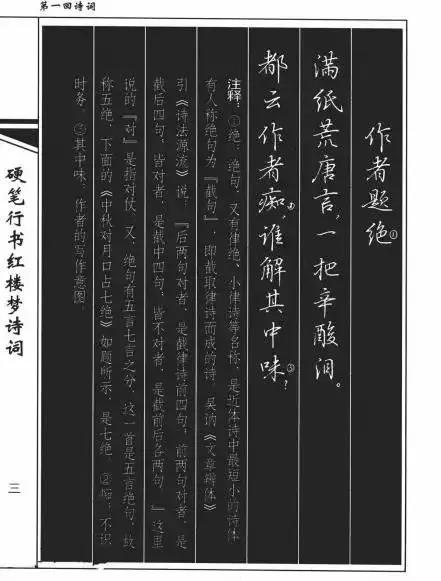 第一回诗词
作者题绝①
满纸荒唐言，一把辛酸泪。
都云作者痴②，谁解其中味③？
注释：①绝：绝句，又有律绝、小律诗等名称，是近体诗中最短小的诗体
有人称绝句为『截句』，即截取律诗而成的诗。吴讷《文章辨体》
引《诗法源流》说：『后两句对者，是截律诗前四句，前两句对者，是
截后四句，皆对者，是截中四句，皆不对者，是截前后各两句。』这里
说的『对』是指对仗。又，绝句有五言七言之分，这一首是五言绝句，故
称五绝，下面的《中秋对月口占七绝》如题所示，是七绝。②痴：不识
时务。③其中味：作者的写作意图。
硬笔行书红楼梦诗词
三